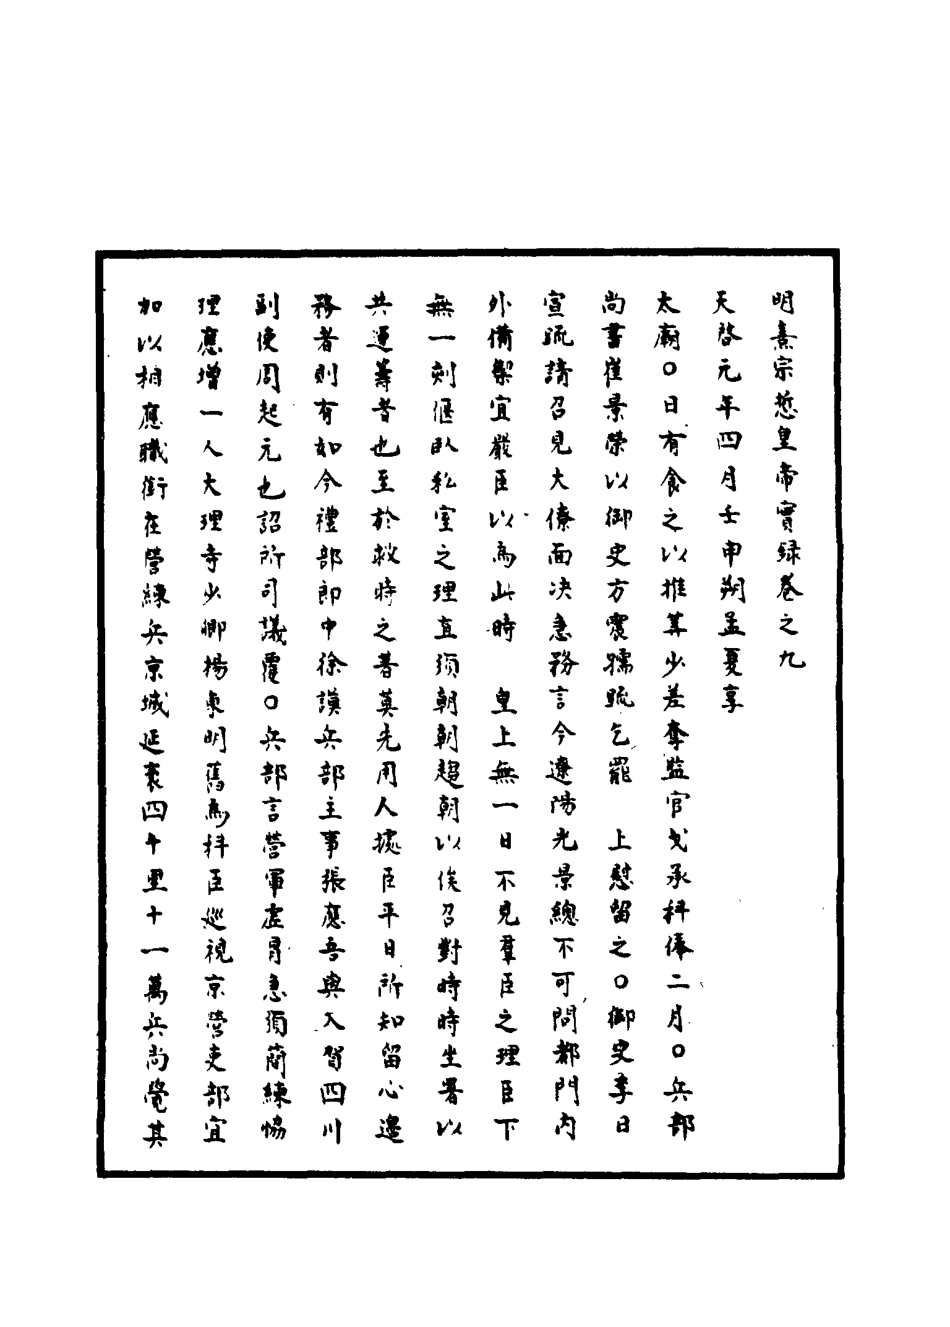 明熹宗悊皇帝實録卷之九
天啓元年四月壬申朔孟夏享
太廟○日有食之以推筭少差奪監官戈承科俸二月○兵部
尚書崔景榮以御史方震孺疏乞罷　上慰留之○御史李日
宣疏請召見大僚面决急務言今遼陽光景總不可問都門內
外備禦宜嚴臣以爲此時　皇上無一日不見羣臣之理臣下
無一刻偃臥私室之理直須朝朝趨朝以俟召對時時坐署以
共運籌者也至於救時之著莫先用人據臣平日所知留心邊
務者則有如今禮部郎中徐謨兵部主事張應吾與入賀四川
副使周起元也詔所司議覆○兵部言營軍虛冐急須蕳練恊
理應增一人大理寺少卿楊東明舊爲科臣廵視京營吏部宜
加以相應職銜在營練兵京城延袤四十里十一萬兵尚覺其